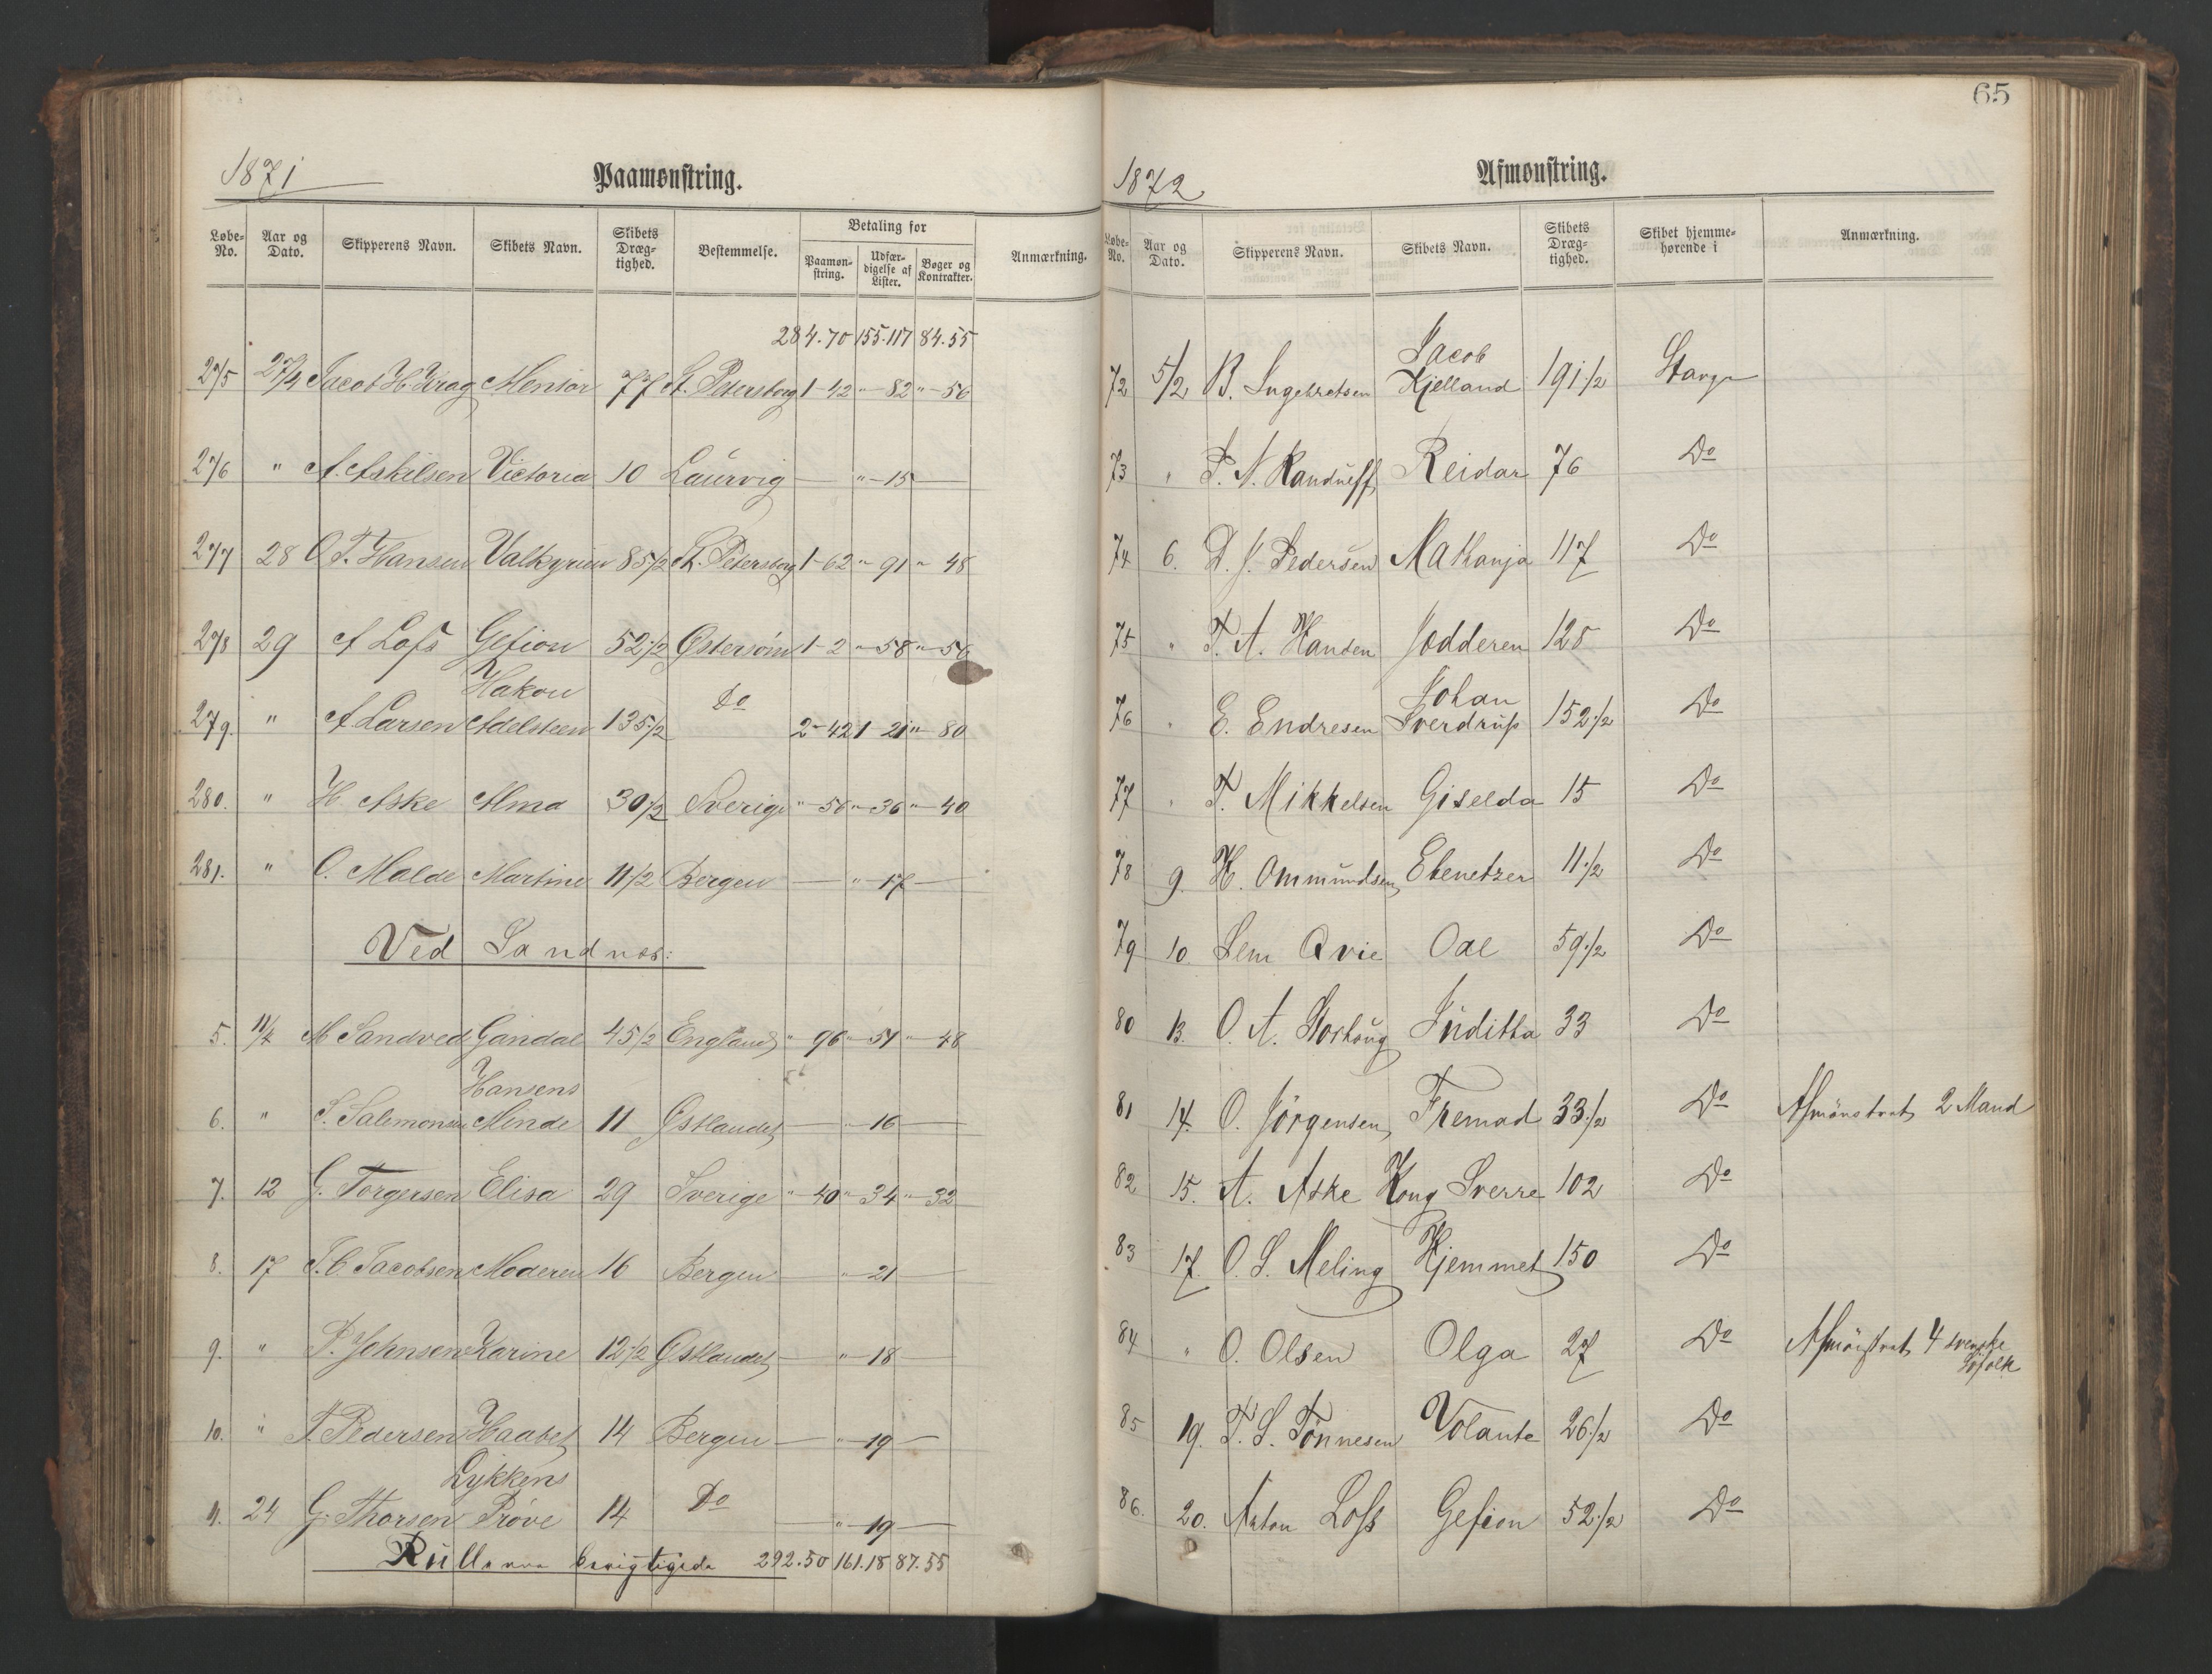 1871
Paamønstring.
Løbe-No. Aar og Dato. Skipperens Navn. Skibets Navn. Skibets Dræg-tighed. Bestemmelse. Betaling for Paamøn-string. Udfær-digelse af Lister. Bøger og Kontrakter. Anmærkning.
284.70 155.117 84.55
275 27/4 Jacob H. Krag Mentor 77 St. Petersborg 1-42 "-82 "-56
276 " A. Askilsen Victoria 10 Laurvig — "-15 —
277 28 O. T. Hansen Valkyrien 85 1/2 St. Petersborg 1-62 "-91 "-48
278 29 A Lofs Gefion 52 1/2 Østersöen 1-2 "-58 "-56
Hakon
279. " A Larsen Adelsteen 135 1/2 Do 2-42 1-21 "-80
280. " H. Aske Alma 30 1/2 Sverige "-56 "-36 "-40
281. " O. Malde Martine 11 1/2 Bergen — "-17 —
Ved Sandnæs:
5. 11/4 M Sandved Gandal 45 1/2 England "-96 "-51 "-48
Hansens
6. " S. Salemonsen Minde 11 Østlandet — "-16 —
7. 12 G. Torgersen Elisa 29 Sverige "-40 "-34 "-32
8. 17 J. C. Jacobsen Moderen 16 Bergen — "-21 —
9. " P. Johnsen Karine 12 1/2 Østlandet — "-18 —
10. " T. Pedersen Haabet 14 Bergen — "-19 —
Lykkens
11. 24 G. Thorsen Pröve 14 Do — "-19 —
Rullerne berigtigede 292.50 161.18 87.55
65
1872
Afmønstring.
Løbe-No. Aar og Dato. Skipperens Navn. Skibets Navn. Skibets Dræg-tighed. Skibet hjemme-hørende i Anmærkning.
Jacob
72 5/2 B. Ingebretsen Kjelland 191 1/2 Stavgr
73 " T. N. Randulff Reidar 76 Do
74 6. D. J. Pedersen Nathanja 117 Do
75 " T. A. Hansen Jædderen 128 Do
Johan
76 " E. Endresen Sverdrup 152 1/2 Do
77 " T. Mikkelsen Giselda 15 Do
78 9. H. Ommundsen Ebenetzer 11 1/2 Do
79 10 Sem Qvie Oal 59 1/2 Do
80 13. O. A. Storhaug Juditha 33 Do
81 14. O. Jörgensen Fremad 33 1/2 Do Afmönstret 2 Mand
82 15. A. Aske Kong Sverre 102 Do
83 17. O. S. Meling Hjemmet 150 Do
84 " O. Olsen Olga 27 Do Afmönstret 4 svenske
Söfolk
85 19. T. S. Tönnesen Volante 26 1/2 Do
86. 20. Anton Lofs Gefion 52 1/2 Do